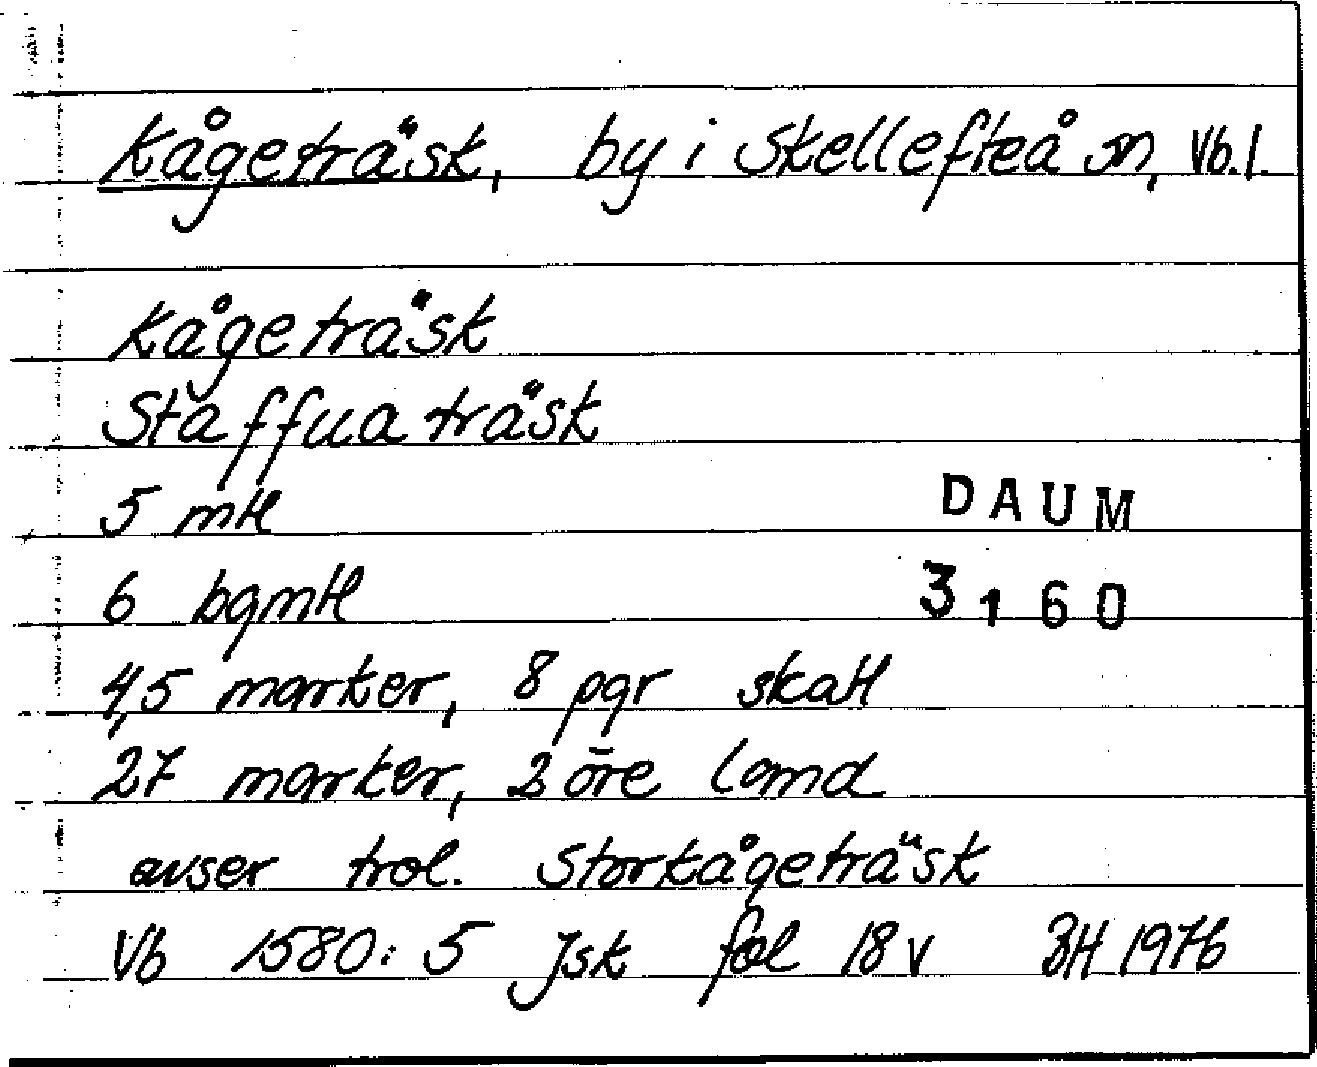 Kågeträsk, by i Skellefteå sn, Vb.l.
Kågeträsk
Staffua träsk
5 mtl
DAUM
6 bgmtl
3160
4,5 marker, 8 pgr skatt
27 marker, 2 öre land
avser trol. Storkågeträsk
Vb 1580:5 Jsk fol 18 v BH 1976